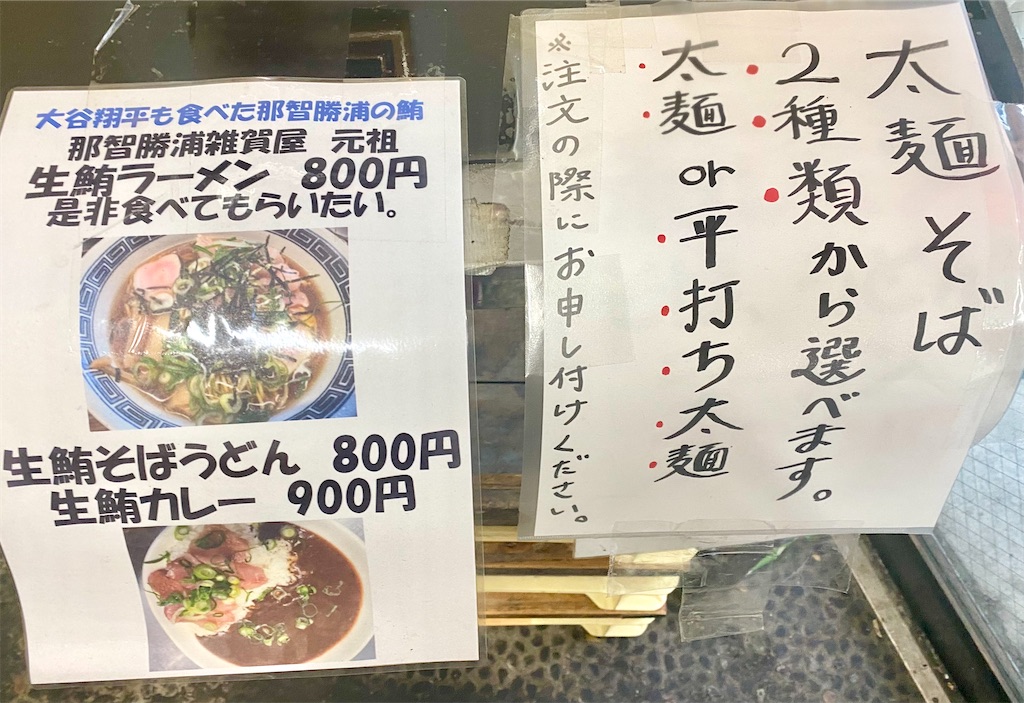 大谷翔平も食べた那智勝浦の鮪
那智勝浦雑賀屋 元祖
生鮪ラーメン 800円
是非食べてもらいたい。
生鮪そばうどん 800円
生鮪カレー 900円
太麺そば
2種類から選べます。
太麺or平打ち太麺
※注文の際にお申し付けください。